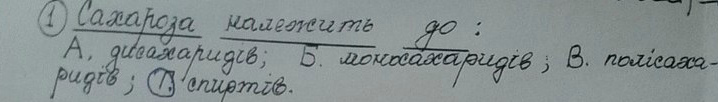 ① Сахароза належить до:
А. дисахаридів; Б. моносахаридів; В. полісаха-
ридів; Г. спиртів.